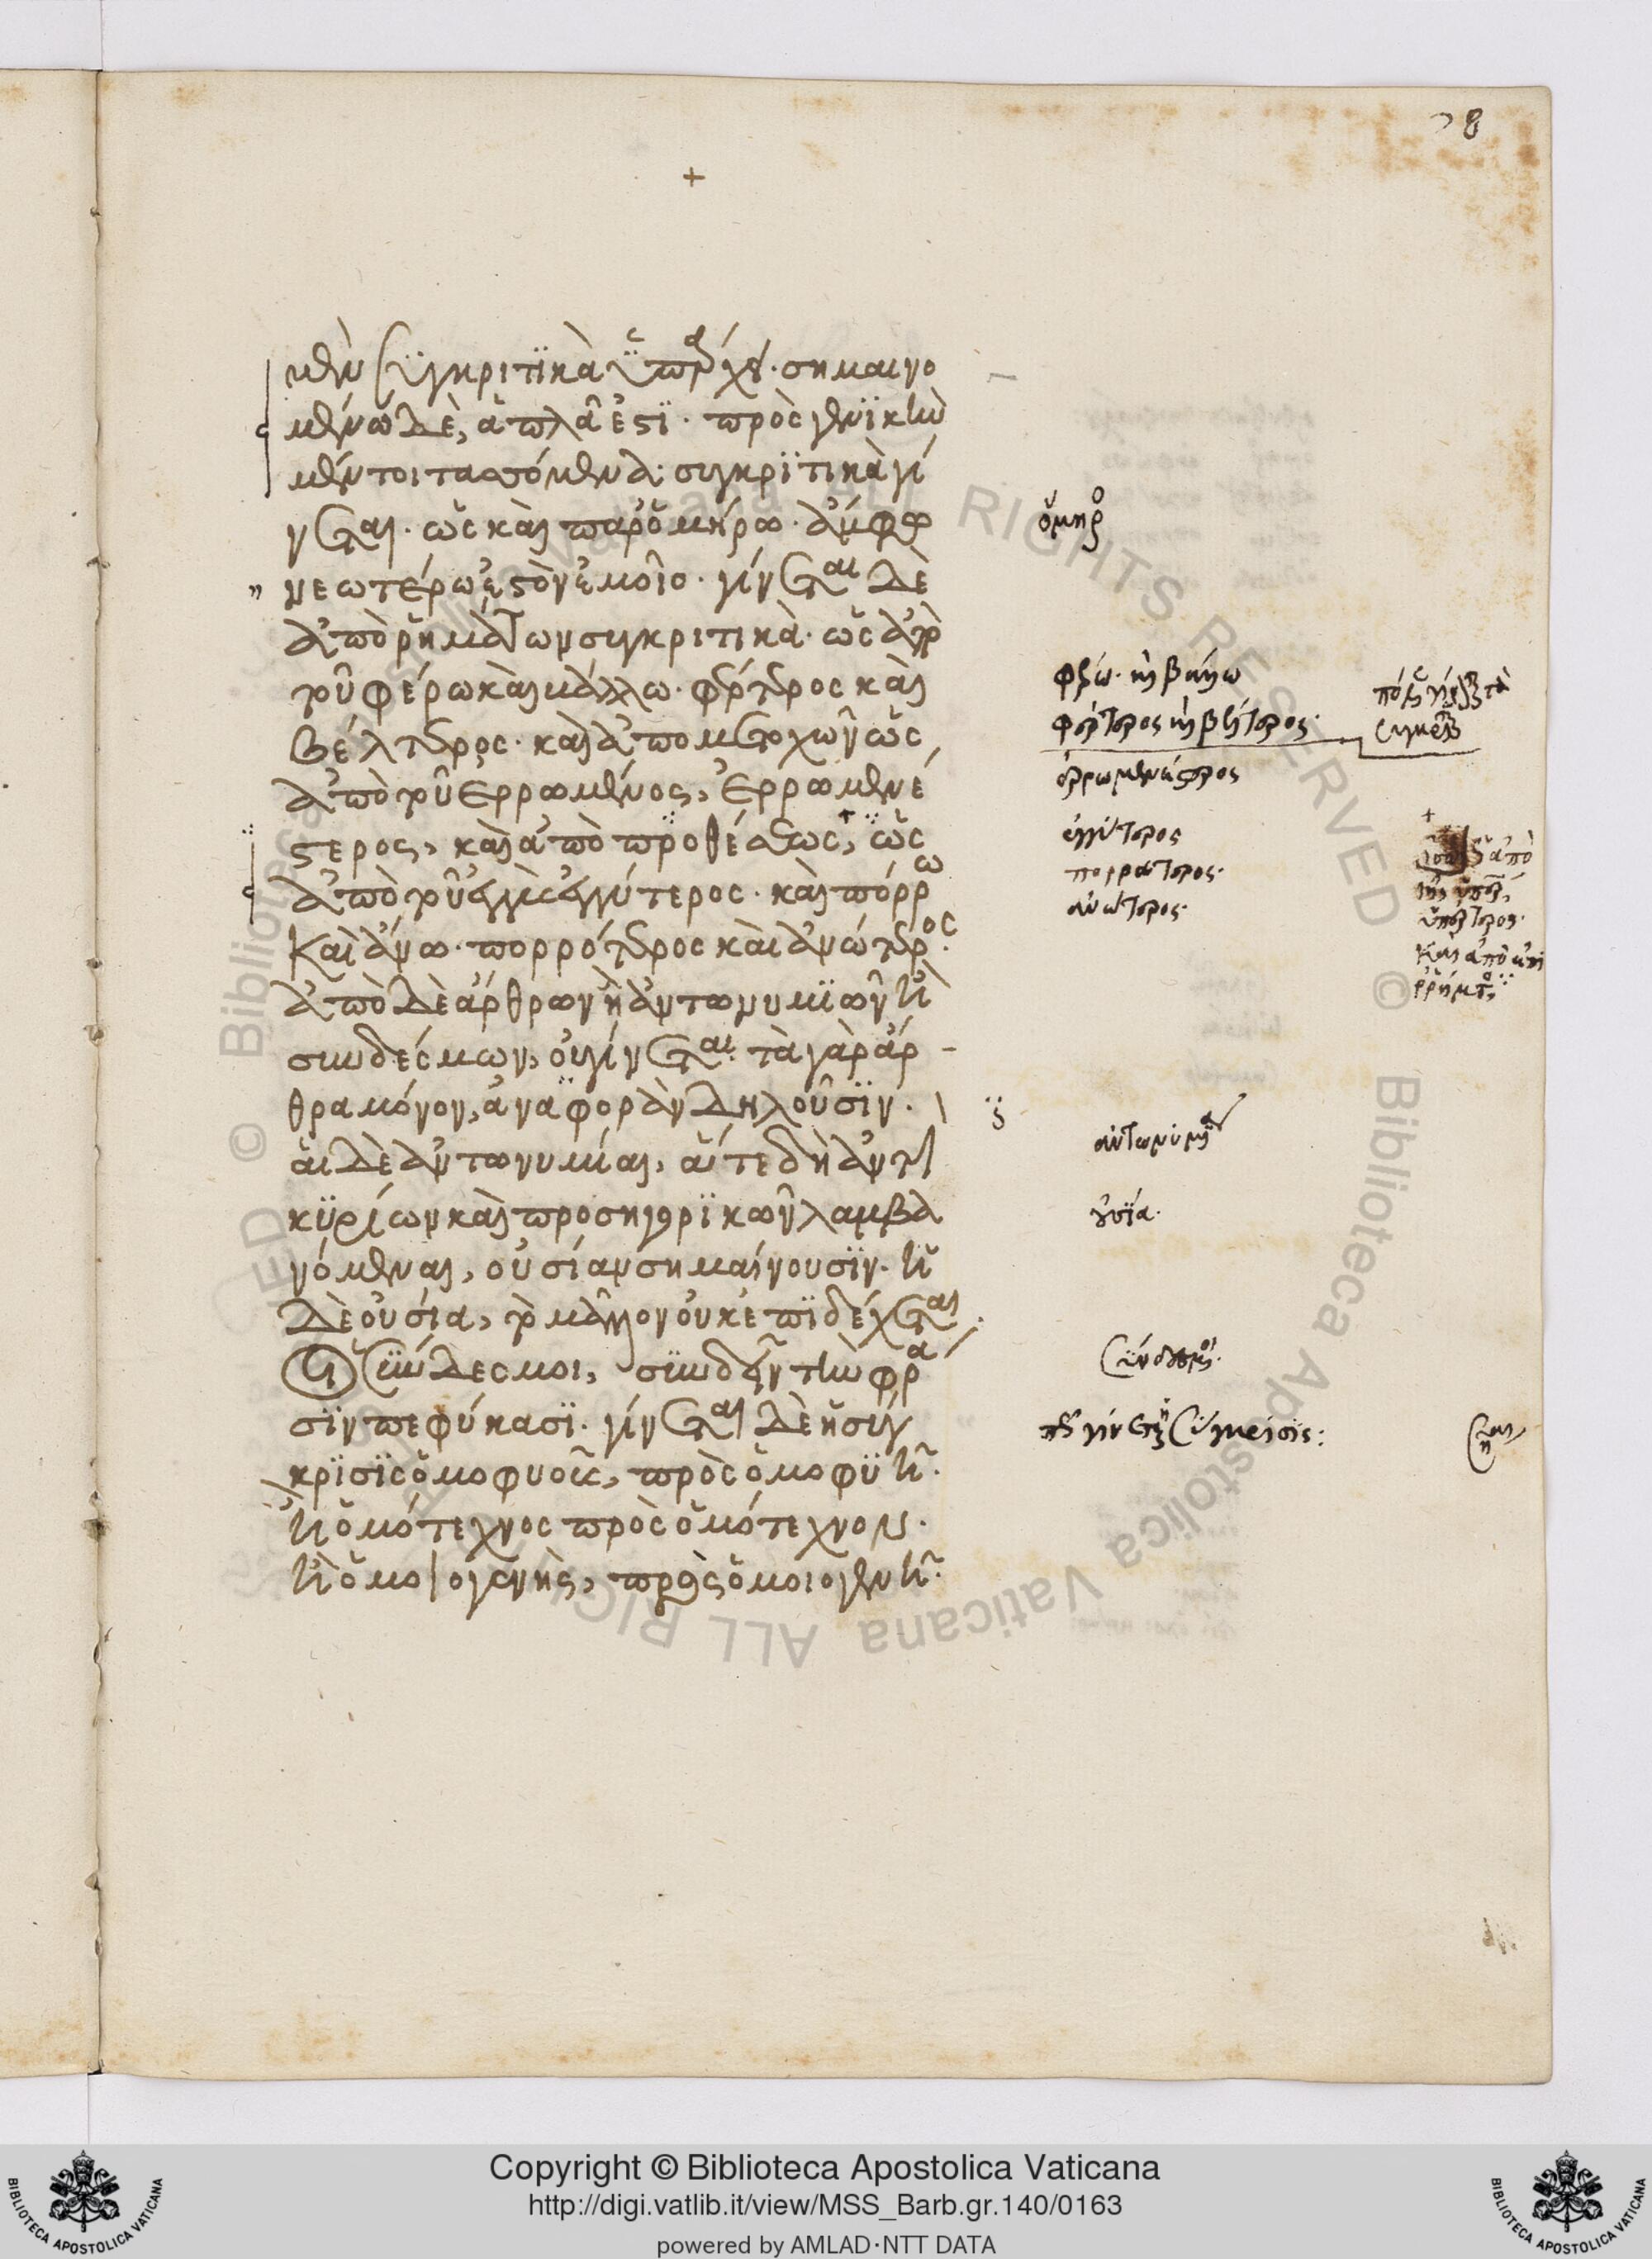 28
+
μὲν συγκριτικὰ ὑπάρχει· σημαινο
μένω δὲ, ἁπλᾶ ἐστι· πρὸς γενικὴν
μέντοι τασσόμενα· συγκριτικὰ γί
νεται· ὡς καὶ παρ' ὁμήρω· ἄμφω
νεωτέρω ἐστὸν ἐμοῖο· γίνεται δὲ
ἀπὸ ῥημάτων συγκριτικὰ· ὡς ἀπὸ
τοῦ φέρω καὶ βάλλω· φέρτερος καὶ
βέλτερος· καὶ ἀπὸ μετοχῶν ὡς
ἀπὸ τοῦ ἐρρωμένος, ἐρρωμενέ
στερος, καὶ ἀπὸ προθέσεως, ὡς
ἀπὸ τοῦ ἐγγὺς ἐγγύτερος· καὶ πόρρω
καὶ ἄνω· πορρότερος καὶ ἀνώτερος·
ἀπὸ δὲ ἄρθρων ἢ ἀντωνυμιῶν ἢ
συνδέσμων, οὐ γίνεται· τὰ γὰρ ἄρ
θρα μόνον, ἀναφορὰν δηλοῦσιν·
αἱ δὲ ἀντωνυμίαι, αἵτε δὴ ἀντὶ
κυρίων καὶ προσηγορικῶν λαμβα
νόμεναι, οὐσίαν σημαίνουσιν· ἡ
δὲ οὐσία, τὸ μᾶλλον οὐκ ἐπιδέχεται·
οἱ σύνδεσμοι, συνδεῖν τὴν φρά
σιν πεφύκασι· γίνεται δὲ ἡ σύγ
κρισις ὁμοφυοῦς, πρὸς ὁμοφυῆ·
ἢ ὁμότεχνος πρὸς ὁμότεχνον·
ἢ ὁμοιογενὴς, πρὸς ὁμοιογενῆ·
ὅμηρος
φέρω· καὶ βάλλω
φέρτερος καὶ βέλτερος·
ἐρρωμενέστερος
ἐγγύτερος
πορρώτερος·
ἀνώτερος·
ἀπὸ
ὑπέρτερος·
καὶ ἀπὸ ἐπι
ἀντωνυμία
οὐσία·
σύνδεσμοι·
πῶς γίνεται ἡ σύγκρισις:
Copyright © Biblioteca Apostolica Vaticana
http://digi.vatlib.it/view/MSS_Barb.gr.140/0163
powered by AMLAD·NTT DATA
BIBLIOTECA APOSTOLICA VATICANA
BIBLIOTECA APOSTOLICA VATICANA
© Biblioteca Apostolica Vaticana ALL RIGHTS RESERVED